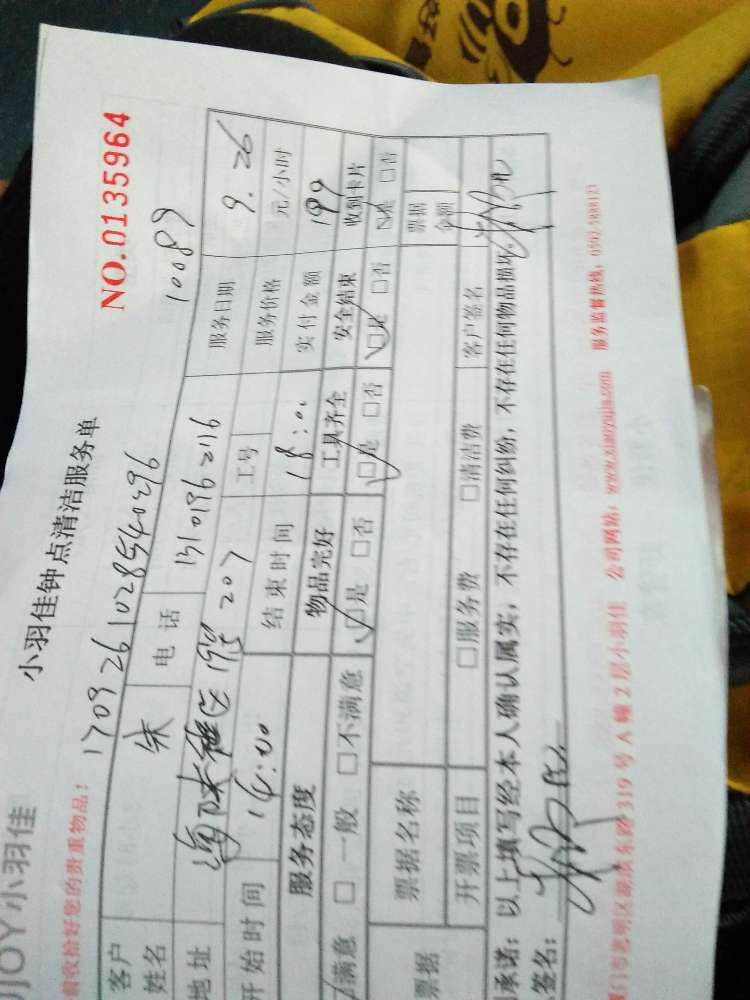 JOY小羽佳
小羽佳钟点清洁服务单
NO.0135964
前收拾好您的贵重物品:
1709261028540296
10089
客户姓名 朱 电话 13101962116 服务日期 9.26
地址 207 工号 服务价格 元/小时
开始时间 14:00 结束时间 18:00 实付金额 199
服务态度 物品完好 工具齐全 安全结束 收到卡片
满意 □一般 □不满意 □是 □否 □是 □否 □是 □否 □是 □否
票据 票据名称 票据金额
开票项目 □服务费 □清洁费 客户签名
承诺:以上填写经本人确认属实,不存在任何纠纷,不存在任何物品损坏。
签名:
厦门市思明区湖滨东路319号A幢2层小羽佳 公司网站:www.xiaoyujia.com 服务监督热线:0592-5888123